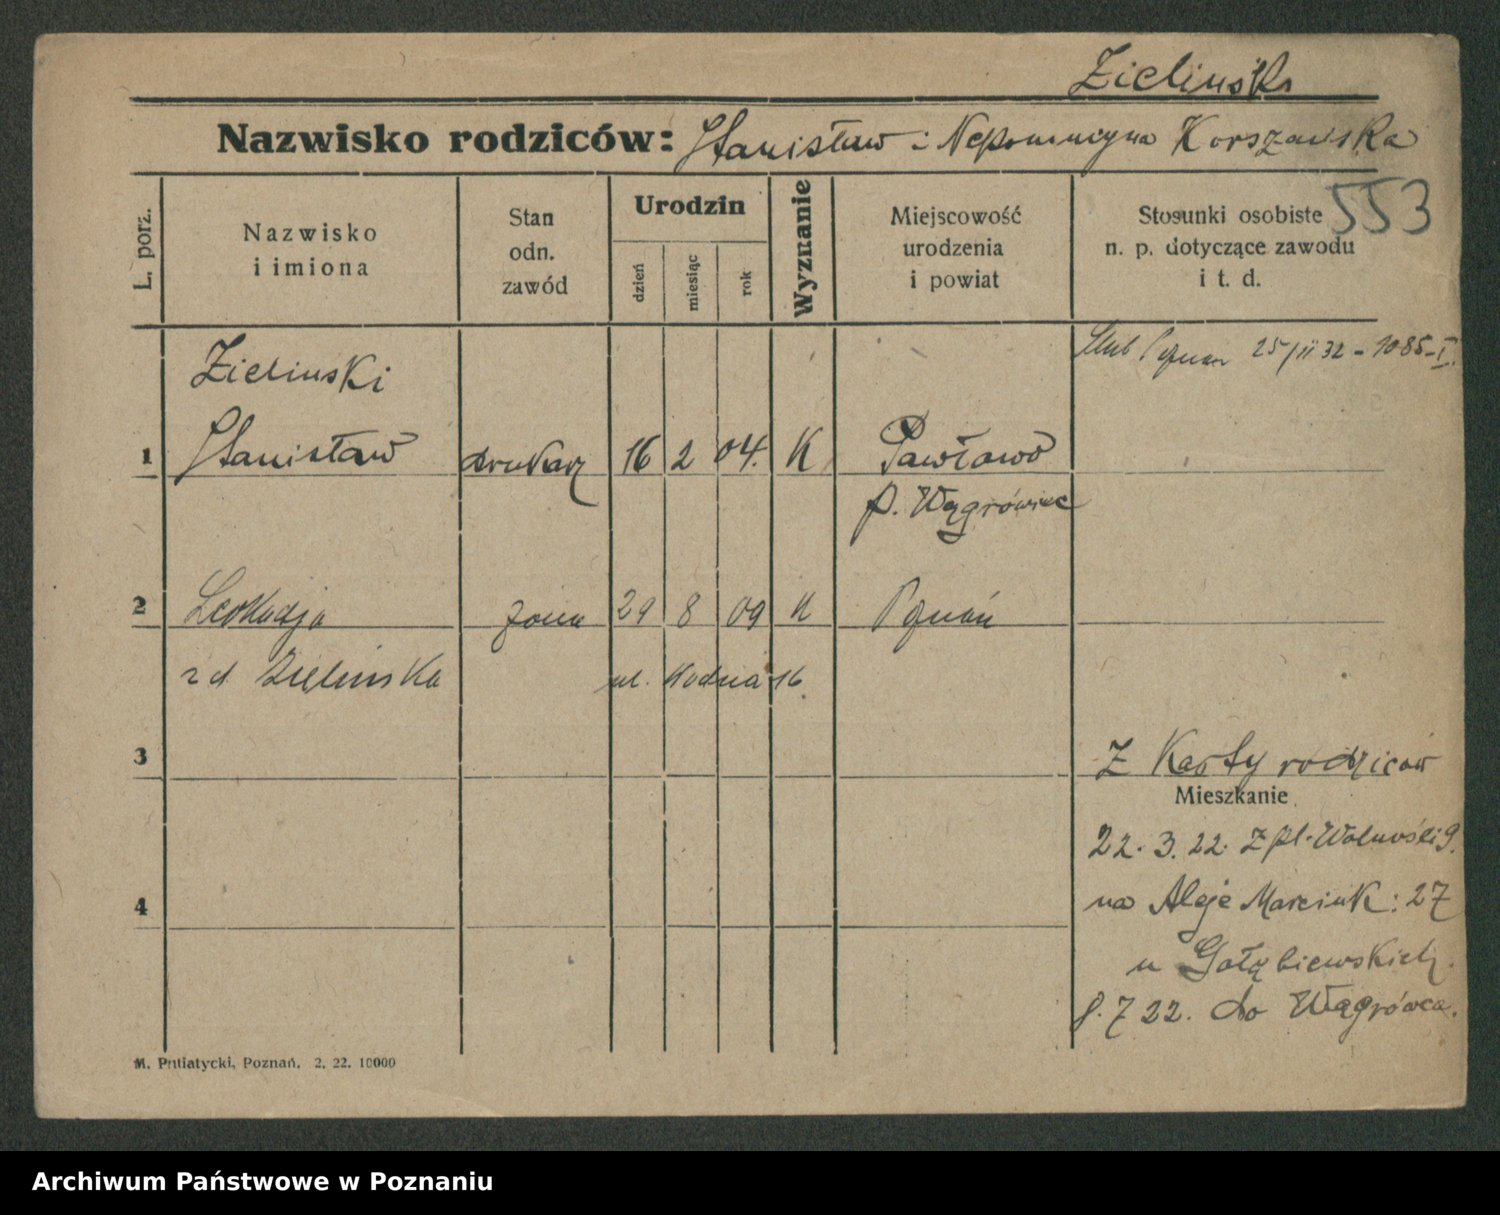 Zieliński
Nazwisko rodziców: Stanisław i Nepomucyna Korszańska
553
L. porz.
Nazwisko i imiona
Stan odn. zawód
Urodzin
dzień
miesiąc
rok
Wyznanie
Miejscowość urodzenia i powiat
Stosunki osobiste n. p. dotyczące zawodu i t. d.
Ślub Poznań 25/II 32 - 1085-I.
Zielinski
1 Stanisław drukarz 16 2 04. K Pawłowo
p. Wągrówiec
2 Leokadja żona 29 8 09 K Poznań
z d. Zielińska ul. Wodna 16
3 Z Karty rodziców
Mieszkanie
22. 3. 22. Z pl. Wolności 9.
4 na Aleje Marcink: 27
u Gołębiewskich.
8. 7 22. do Wągrówca.
M. Putiatycki, Poznań, 2. 22. 10000
Archiwum Państwowe w Poznaniu